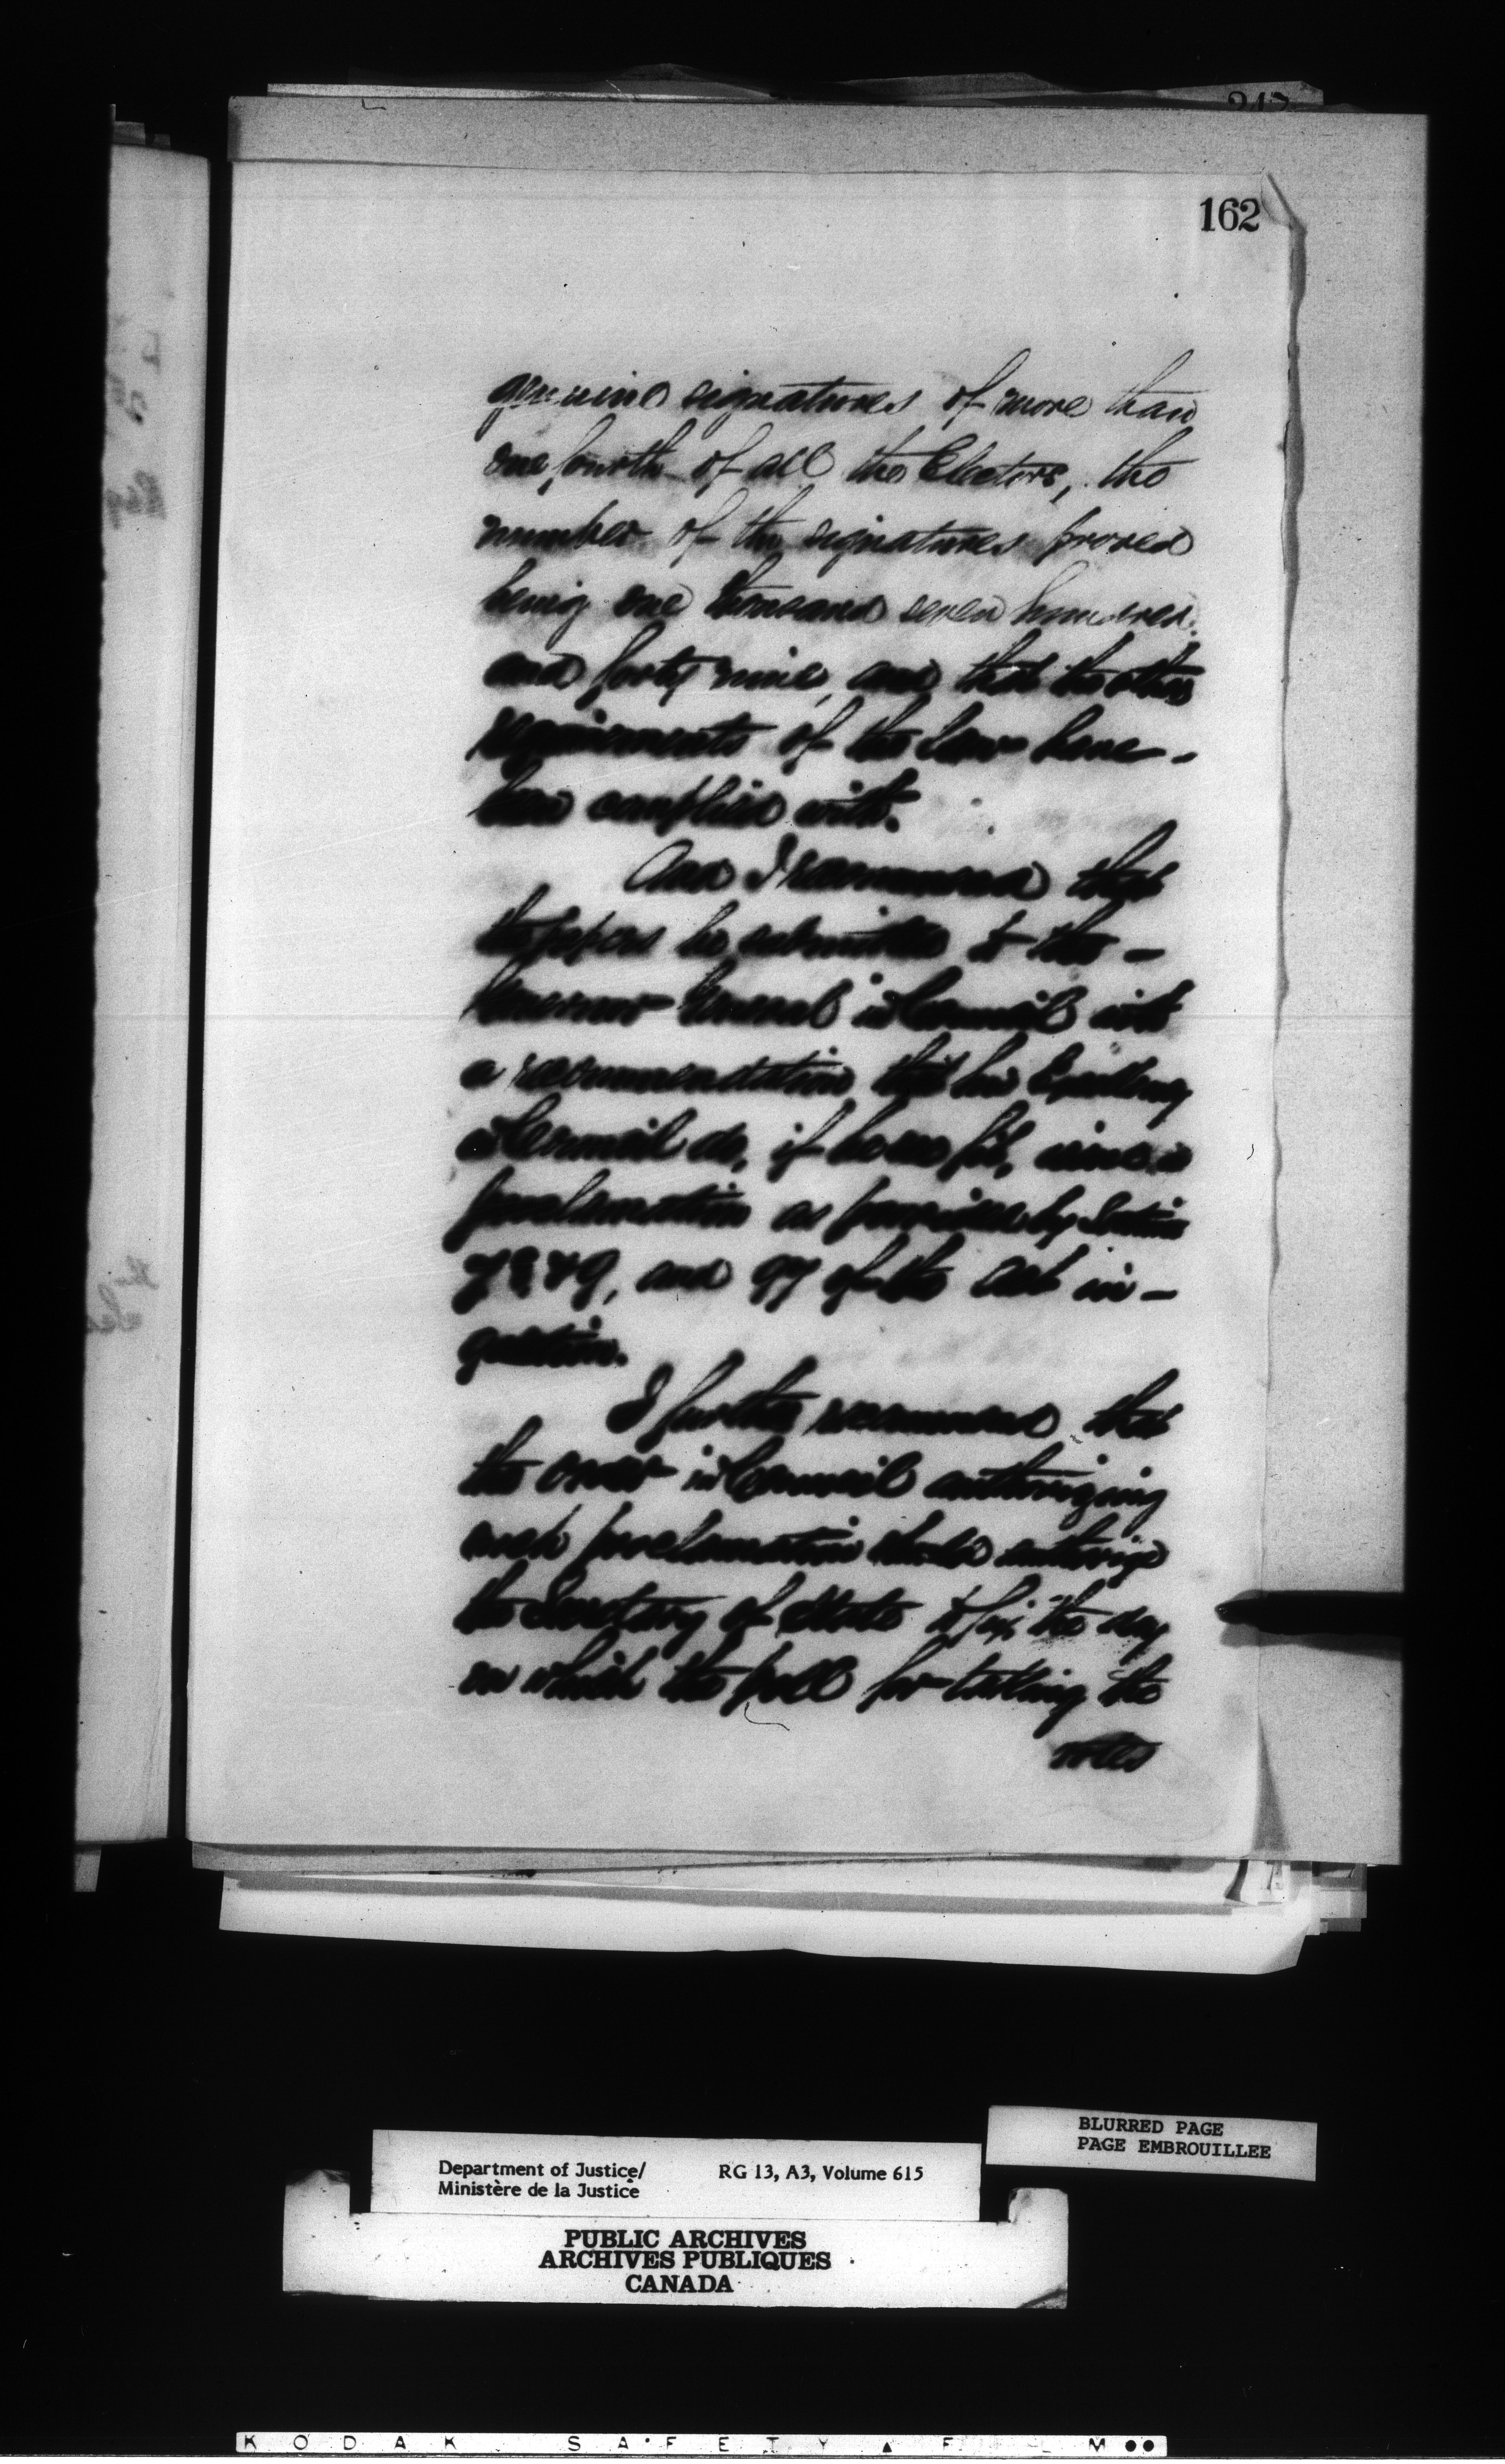 162
genuine signatures of more than
one fourth of all the Electors, the
number of the signatures proved
being one thousand seven hundred
and forty nine, and that the other
requirements of the law have -
been complied with.
And I recommend that
the papers be submitted to the -
Governor General in Council with
a recommendation that his Excellency
in Council do, if he see fit, issue a
proclamation as provided by Section
7 8 & 9, and 97 of the Act in -
question.
I further recommend that
the order in Council authorizing
such proclamation should authorize
the Secretary of State to fix the day
on which the poll for taking the
votes
BLURRED PAGE
PAGE EMBROUILLEE
Department of Justice/ RG 13, A3, Volume 615
Ministère de la Justice
PUBLIC ARCHIVES
ARCHIVES PUBLIQUES
CANADA
KODAK SAFETY FILM